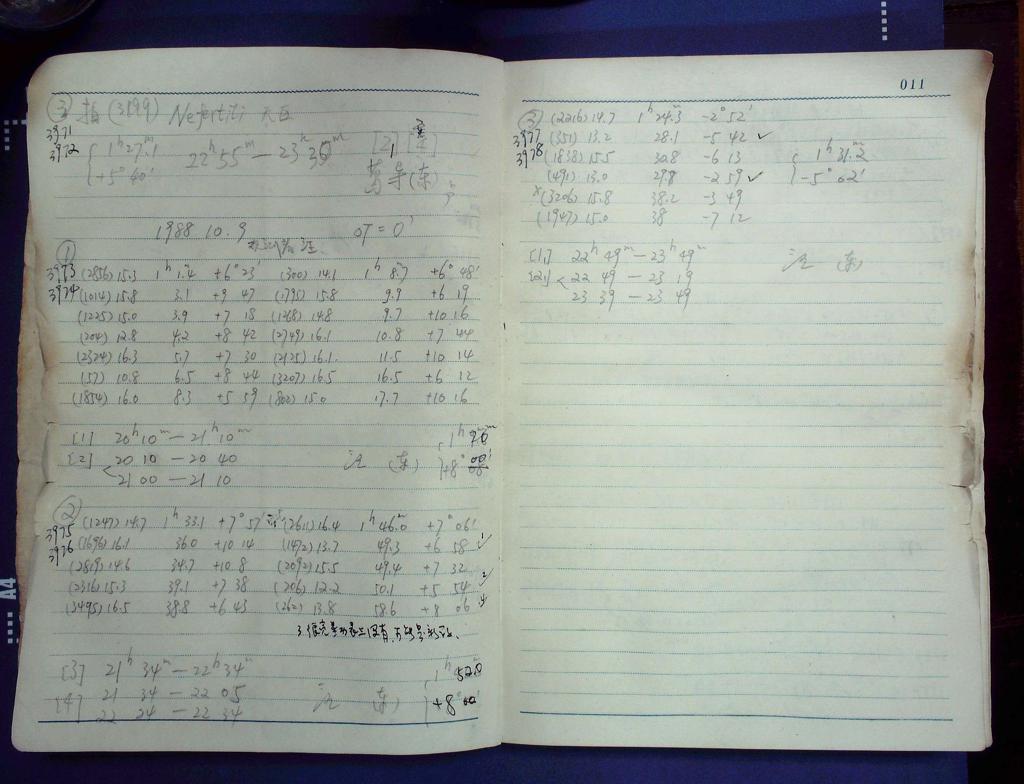 ③ 拍 (3199) Nefertiti
3971
3972
1ʰ27.1
+5° 40′
22ʰ55ᵐ — 23ʰ35ᵐ
[2]
(东)
1988 10.9 ΔT = 0
①
3973 (2856) 15.3 1ʰ 1.4 +6° 23′ (300) 14.1 1ʰ 8.7 +6° 48′
3974 (1014) 15.8 3.1 +9 47 (1795) 15.8 9.9 +6 19
(1225) 15.0 3.9 +7 18 (1268) 14.8 9.7 +10 16
(204) 12.8 4.2 +8 42 (2749) 16.1 10.8 +7 44
(2324) 16.3 5.7 +7 30 (2125) 16.1 11.5 +10 14
(57) 10.8 6.5 +8 44 (3207) 16.5 16.5 +6 12
(1854) 16.0 8.3 +5 59 (802) 15.0 17.7 +10 16
[1] 20ʰ10ᵐ — 21ʰ10ᵐ
[2] 20 10 — 20 40 (东) +8°
21 00 — 21 10
②
3975 (1247) 14.7 1ʰ 33.1 +7° 57′ (2611) 16.4 1ʰ 46.0ᵐ +7° 06′
3976 (1696) 16.1 36.0 +10 14 (1472) 13.7 49.3 +6 58 ✓
(2819) 14.6 34.7 +10 8 (2092) 15.5 49.4 +7 32
(2316) 15.3 39.1 +7 38 (206) 12.2 50.1 +5 54
(3495) 16.5 38.8 +6 43 (262) 13.8 58.6 +8 06
[3] 21ʰ 34ᵐ — 22ʰ34ᵐ 1ʰ 52.0
[4] 21 34 — 22 05 (东) +8° 00′
22 24 — 22 34
011
③ (2216) 14.7 1ʰ 24.3ᵐ -2° 52′
3977 (351) 13.2 28.1 -5 42 ✓
3978 (1838) 15.5 30.8 -6 13 1ʰ 31.2ᵐ
(491) 13.0 29.8 -2 59 ✓ -5° 02′
x (3206) 15.8 38.2 -3 49
(1947) 15.0 38 -7 12
[1] 22ʰ 49ᵐ — 23ʰ 49ᵐ (东)
[2] 22 49 — 23 19
23 39 — 23 49
A4